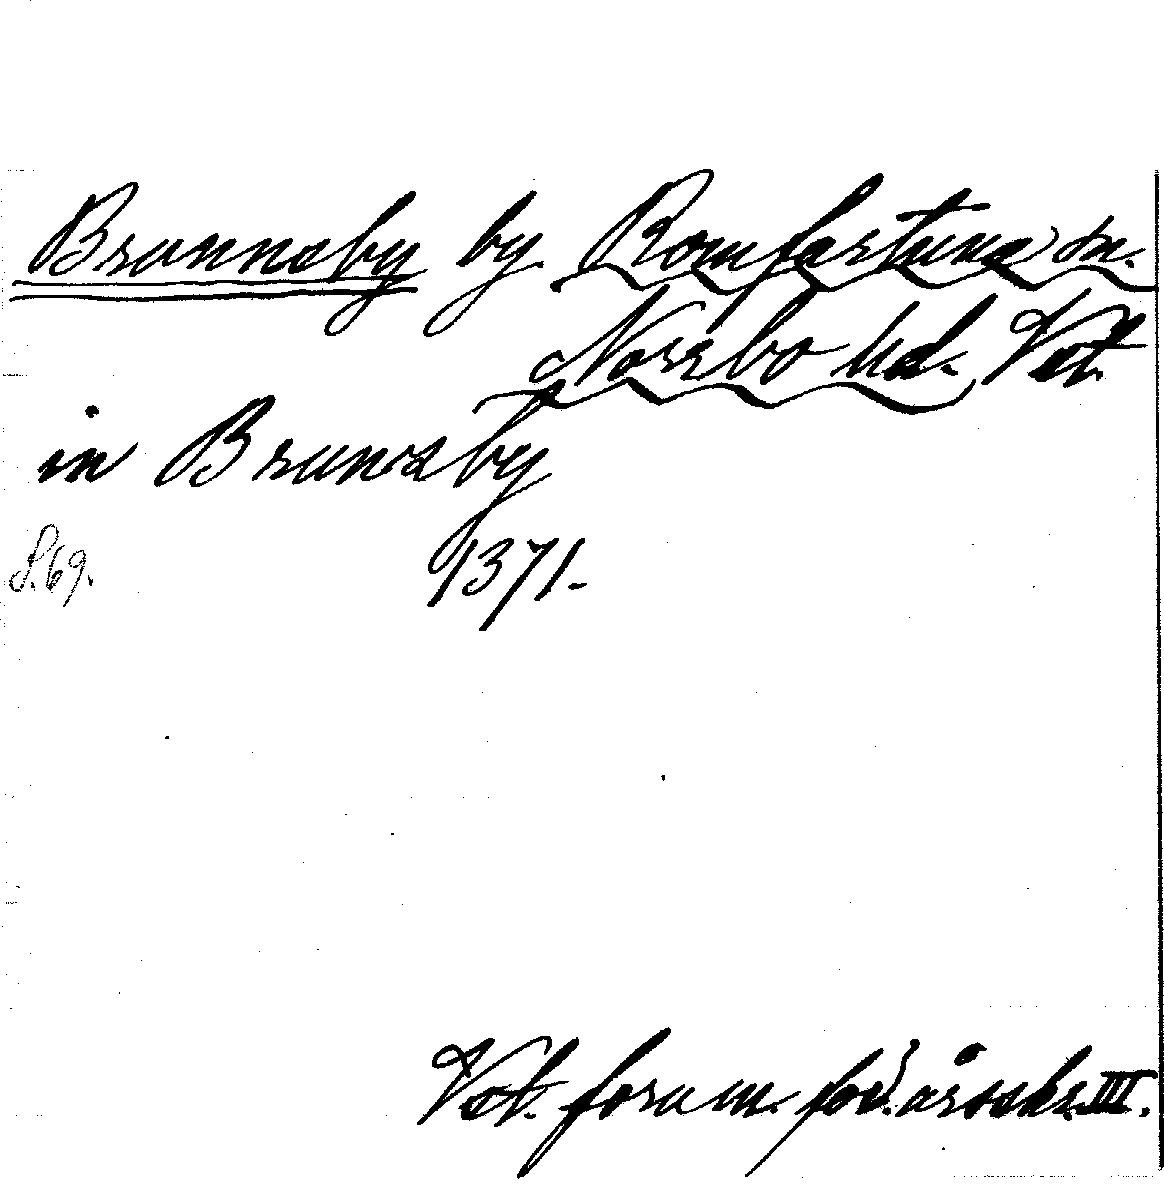 Brunnsby by Romfartuna sn.
Norrbo hd. Vst.
in Brunsby
S. 69. 1371.
Vst. fornm. för. årsskr. III.